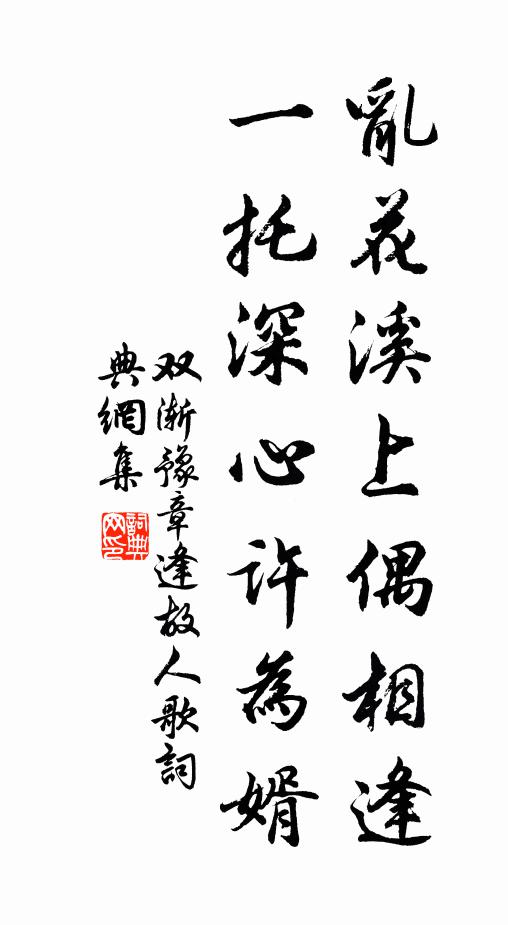 亂花溪上偶相逢
一托深心許為婿
双漸豫章逢故人歌詞
典網集
詞典網印